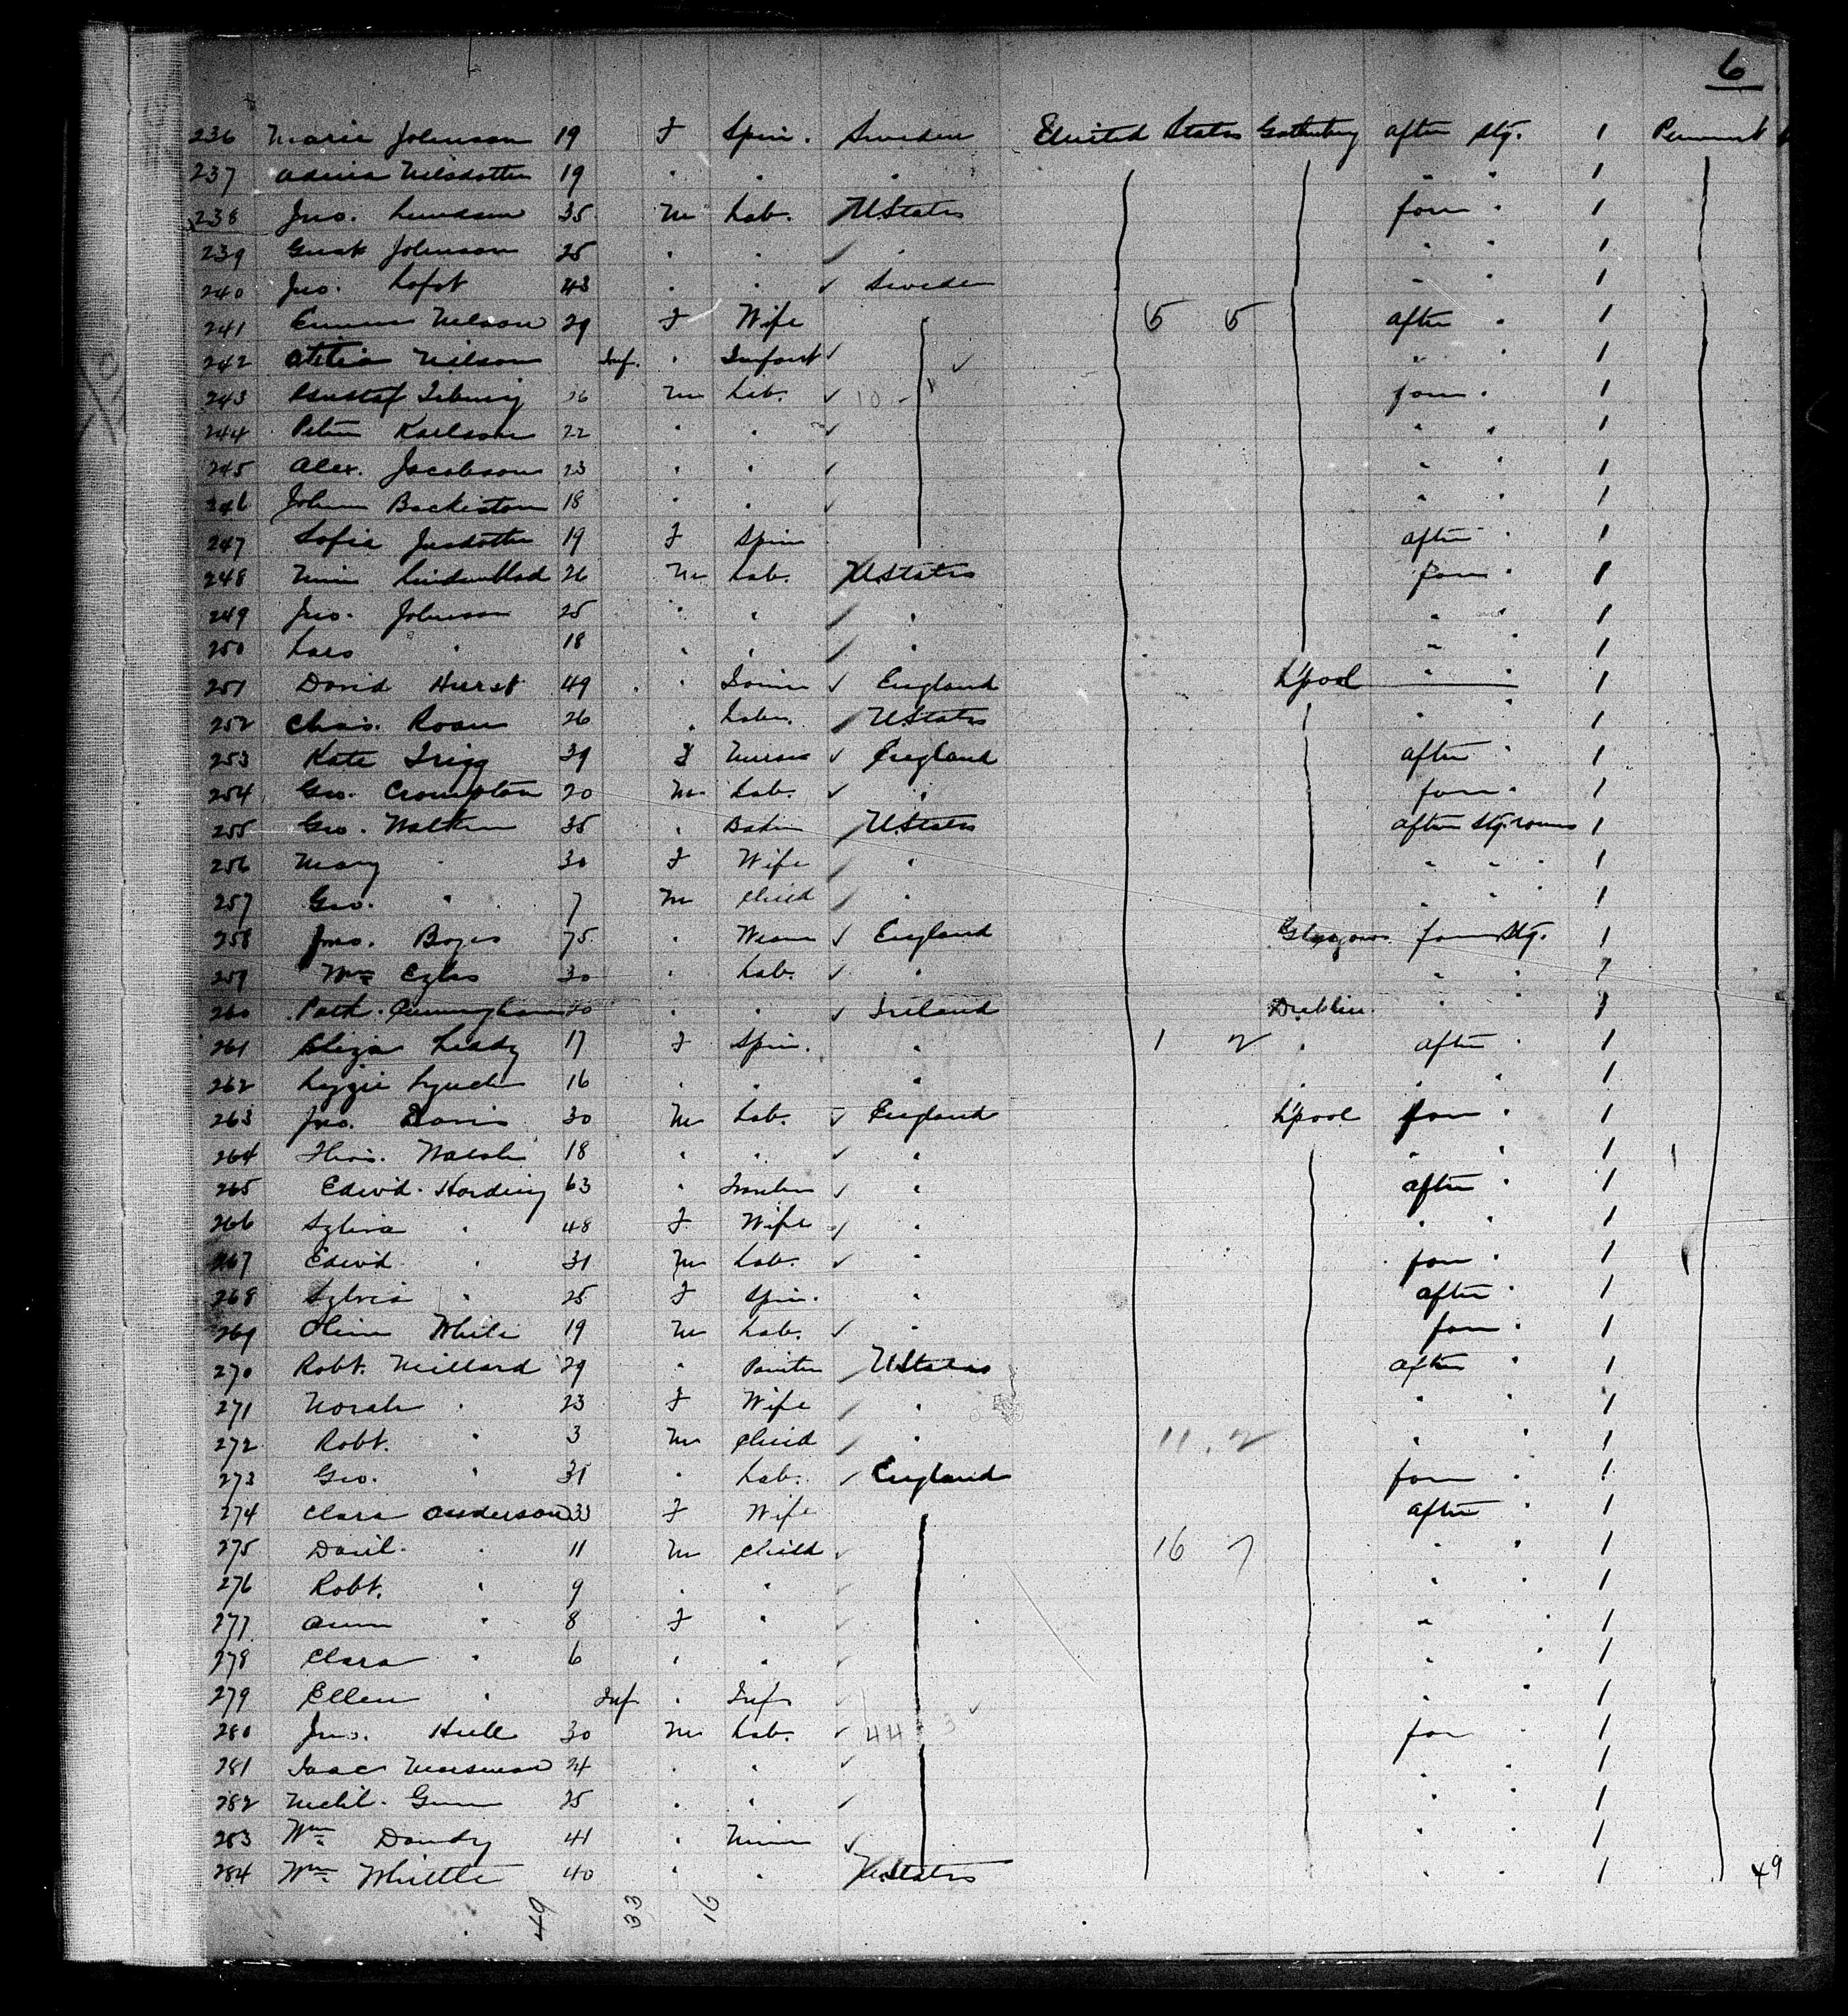 6
236 Maria Johnson 19 F Spin. Sweden United States Gothenburg after Stg. 1 Permnent
237 Nilsdotter 19 " " " " " 1
238 Jno. 35 M Lab. UStates forw " 1
239 Gust Johnson 25 " " " " " 1
240 Jno. Lofst 43 " " Sweden " " 1
241 Emma Nelson 29 F Wife 5 5 after " 1
242 Nilson Inf. " Infant " " 1
243 Gustaf 26 M Lab. 10 forw " 1
244 Peter Karlson 22 " " " " 1
245 Alex. Jacobson 23 " " " " 1
246 Johan 18 " " " " 1
247 Sofia 19 F Spin after " 1
248 Lindenblad 26 M Lab. UStates forw " 1
249 Jno. Johnson 25 " " " " " 1
250 Lars " 18 " " " " " 1
251 David Hurst 49 " England L'pool " " 1
252 Chas. Roan 26 " Labr. UStates " " 1
253 Kate Trigg 39 F Nurse England after " 1
254 Geo. Crompton 20 M Lab. " forw " 1
255 Geo. 35 " UStates after Stg. rooms 1
256 Mary " 30 F Wife " " " " 1
257 Geo. " 7 M Child " " " " 1
258 Jno. 75 " England Glasgow forw Stg. 1
259 Wm 30 " Lab. " " " 1
260 Patk. Cunningham 20 " " Ireland Dublin " " 1
261 Eliza Leddy 17 F Spin. " 1 2 " after " 1
262 Lizzie Lynch 16 " " " " " " 1
263 Jno. Davis 30 M Lab. England L'pool forw " 1
264 Thos. Walsh 18 " " " " " 1
265 Edwd. Harding 63 " " after " 1
266 Sylvia " 48 F Wife " " " 1
267 Edwd. " 31 M Lab. " forw " 1
268 Sylvia " 25 F Spin. " after " 1
269 White 19 M Lab. " forw " 1
270 Robt. Millard 29 " Painter UStates after " 1
271 Norah " 23 F Wife " " " 1
272 Robt. " 3 M Child " 11. 2 " " 1
273 Geo. " 31 " Lab. England forw " 1
274 Clara Anderson 33 F Wife after " 1
275 Danl. " 11 M Child 16 7 " " 1
276 Robt. " 9 " " " " 1
277 Ann " 8 F " " " 1
278 Clara " 6 " " " " 1
279 Ellen " Inf " Inf " " 1
280 Jno. Hill 30 M Lab. 44 3 for " 1
281 Isaac 24 " " " " 1
282 Gunn 25 " " " " 1
283 Wm Dandy 41 " Miner " " 1
284 Wm Whittle 40 " " UStates " " 1 49
49 33 16